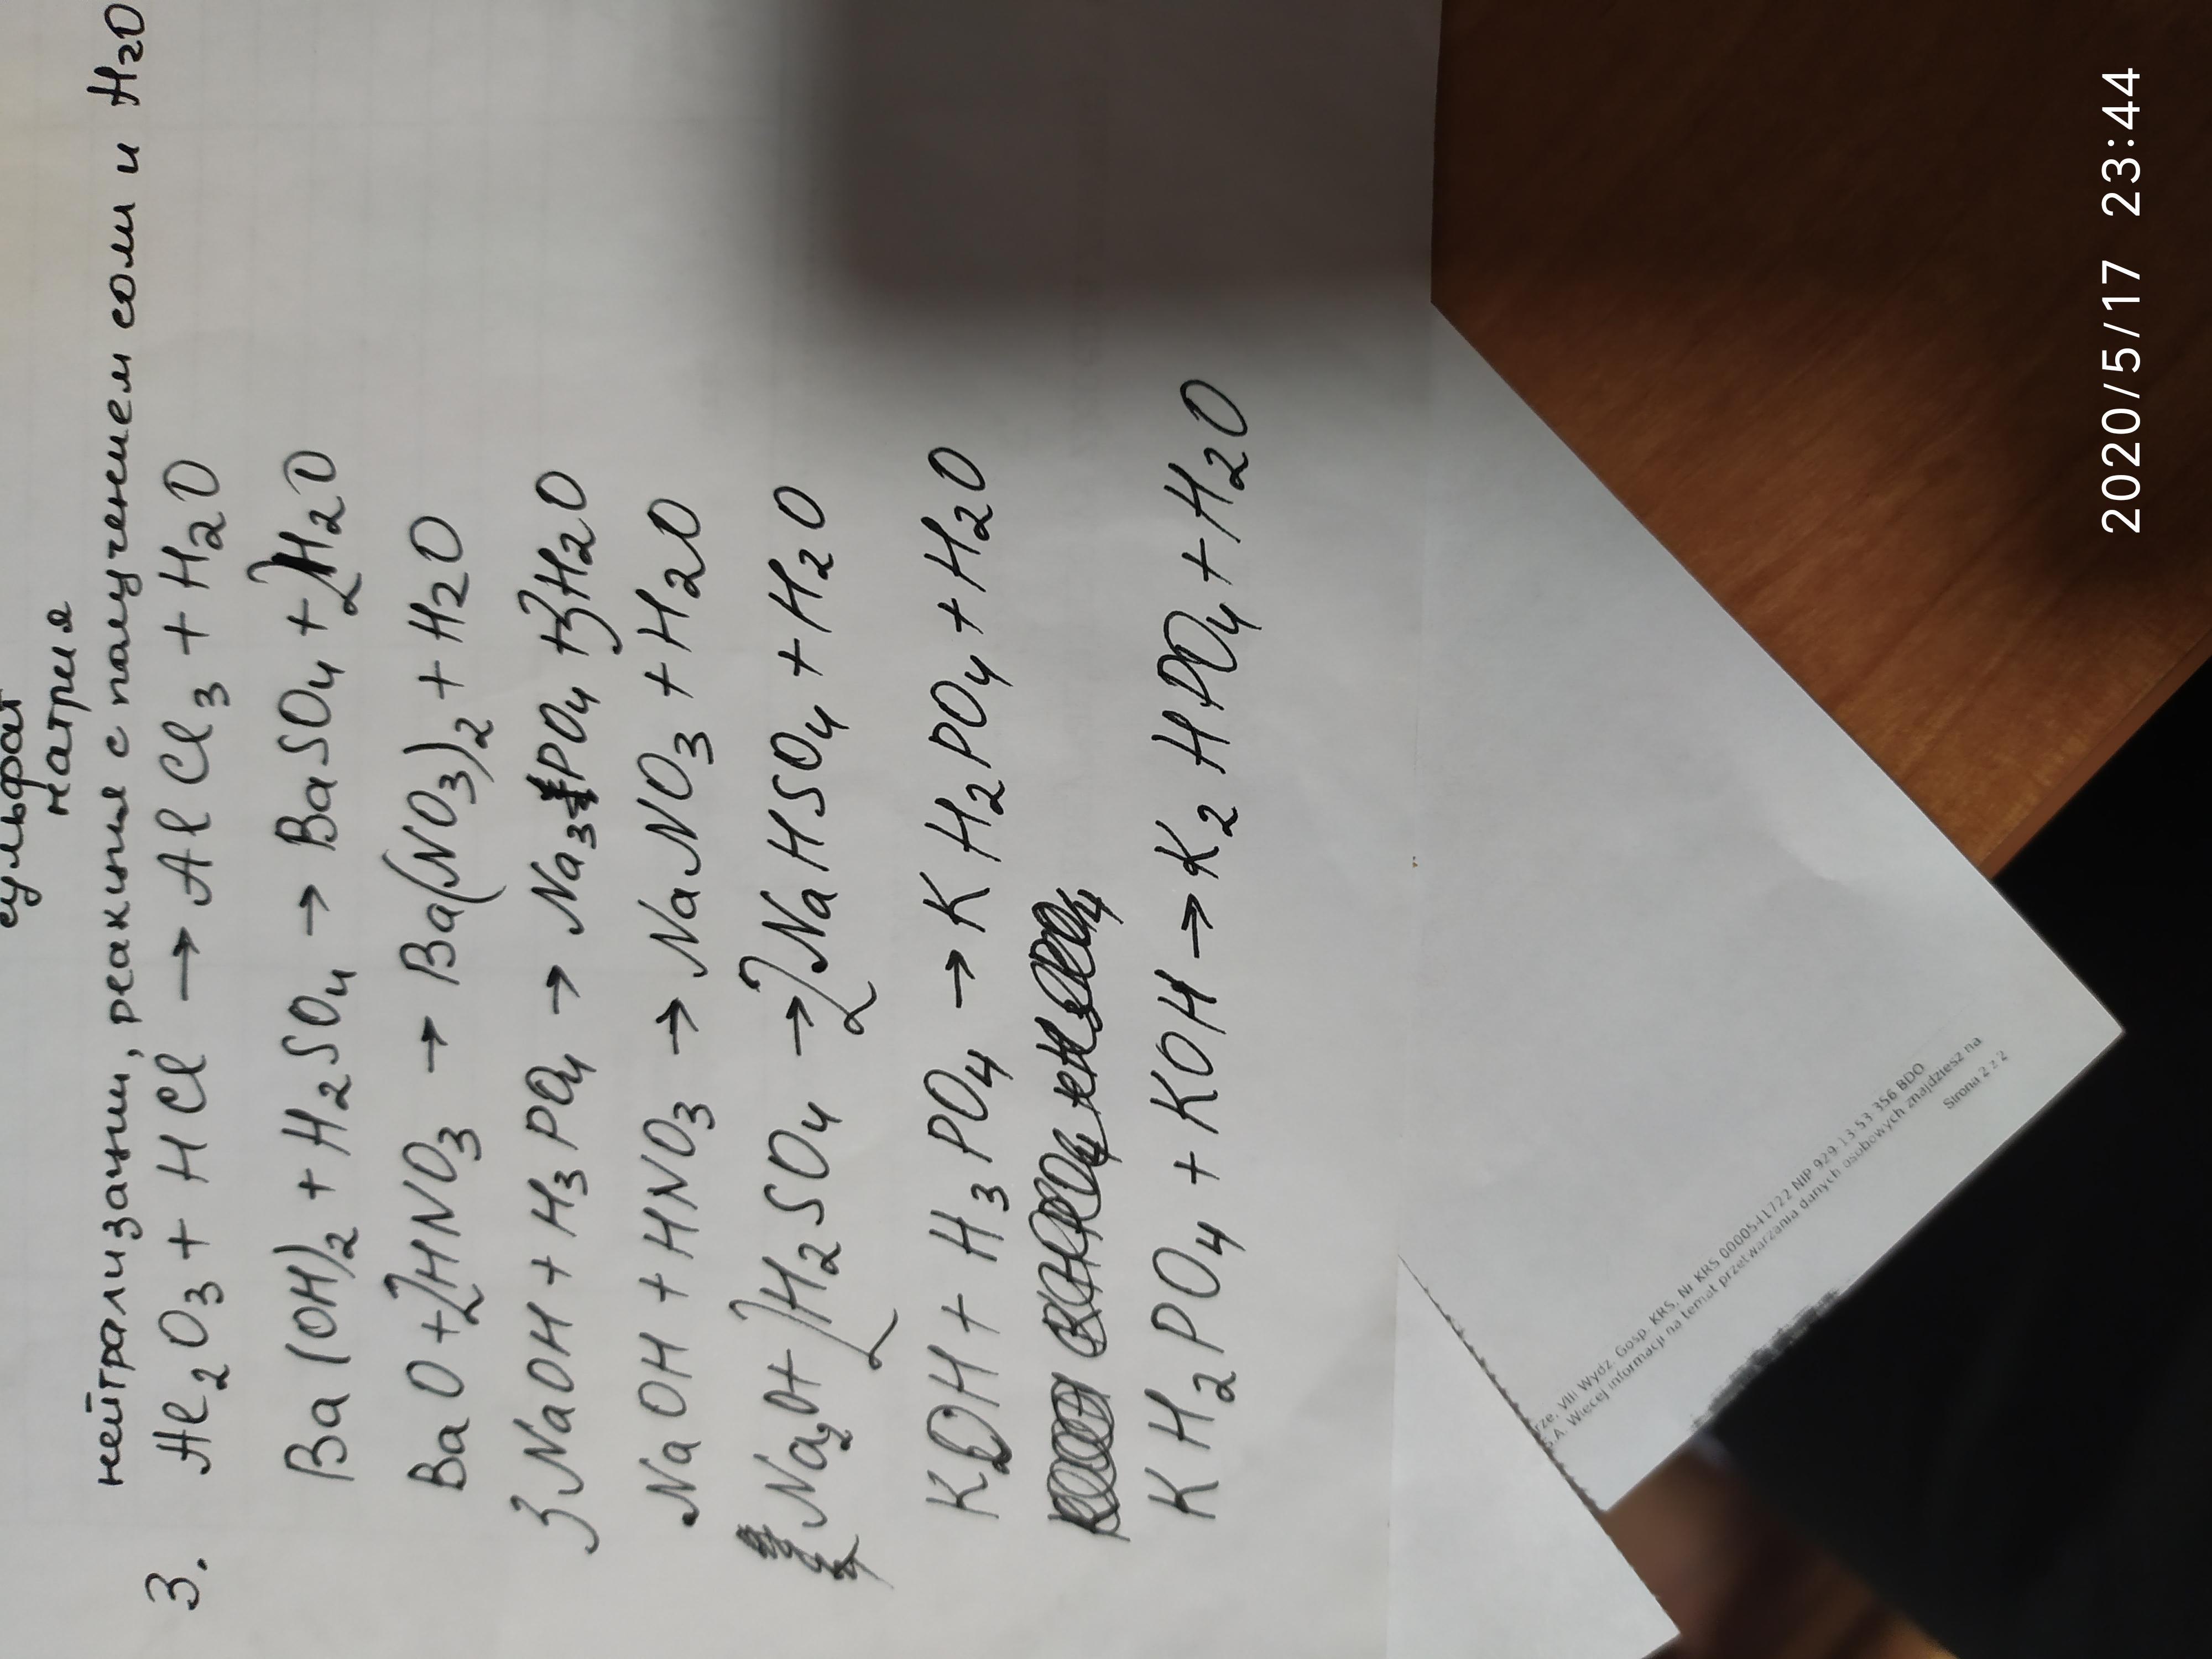 сульфат
натрия
нейтрализации, реакция с получением соли и H₂O
3. Al₂O₃ + HCl → AlCl₃ + H₂O
Ba(OH)₂ + H₂SO₄ → BaSO₄ + 2H₂O
BaO + 2HNO₃ → Ba(NO₃)₂ + H₂O
3NaOH + H₃PO₄ → Na₃PO₄ + 3H₂O
NaOH + HNO₃ → NaNO₃ + H₂O
Na₂O + 2H₂SO₄ → 2NaHSO₄ + H₂O
KOH + H₃PO₄ → KH₂PO₄ + H₂O
KH₂PO₄ + KOH → K₂HPO₄ + H₂O
rze, VIII Wydz. Gosp. KRS, Nr KRS 0000541722 NIP 929-13-53 356 BDO
S.A. Więcej informacji na temat przetwarzania danych osobowych znajdziesz na
Strona 2 z 2
2020/5/17 23:44